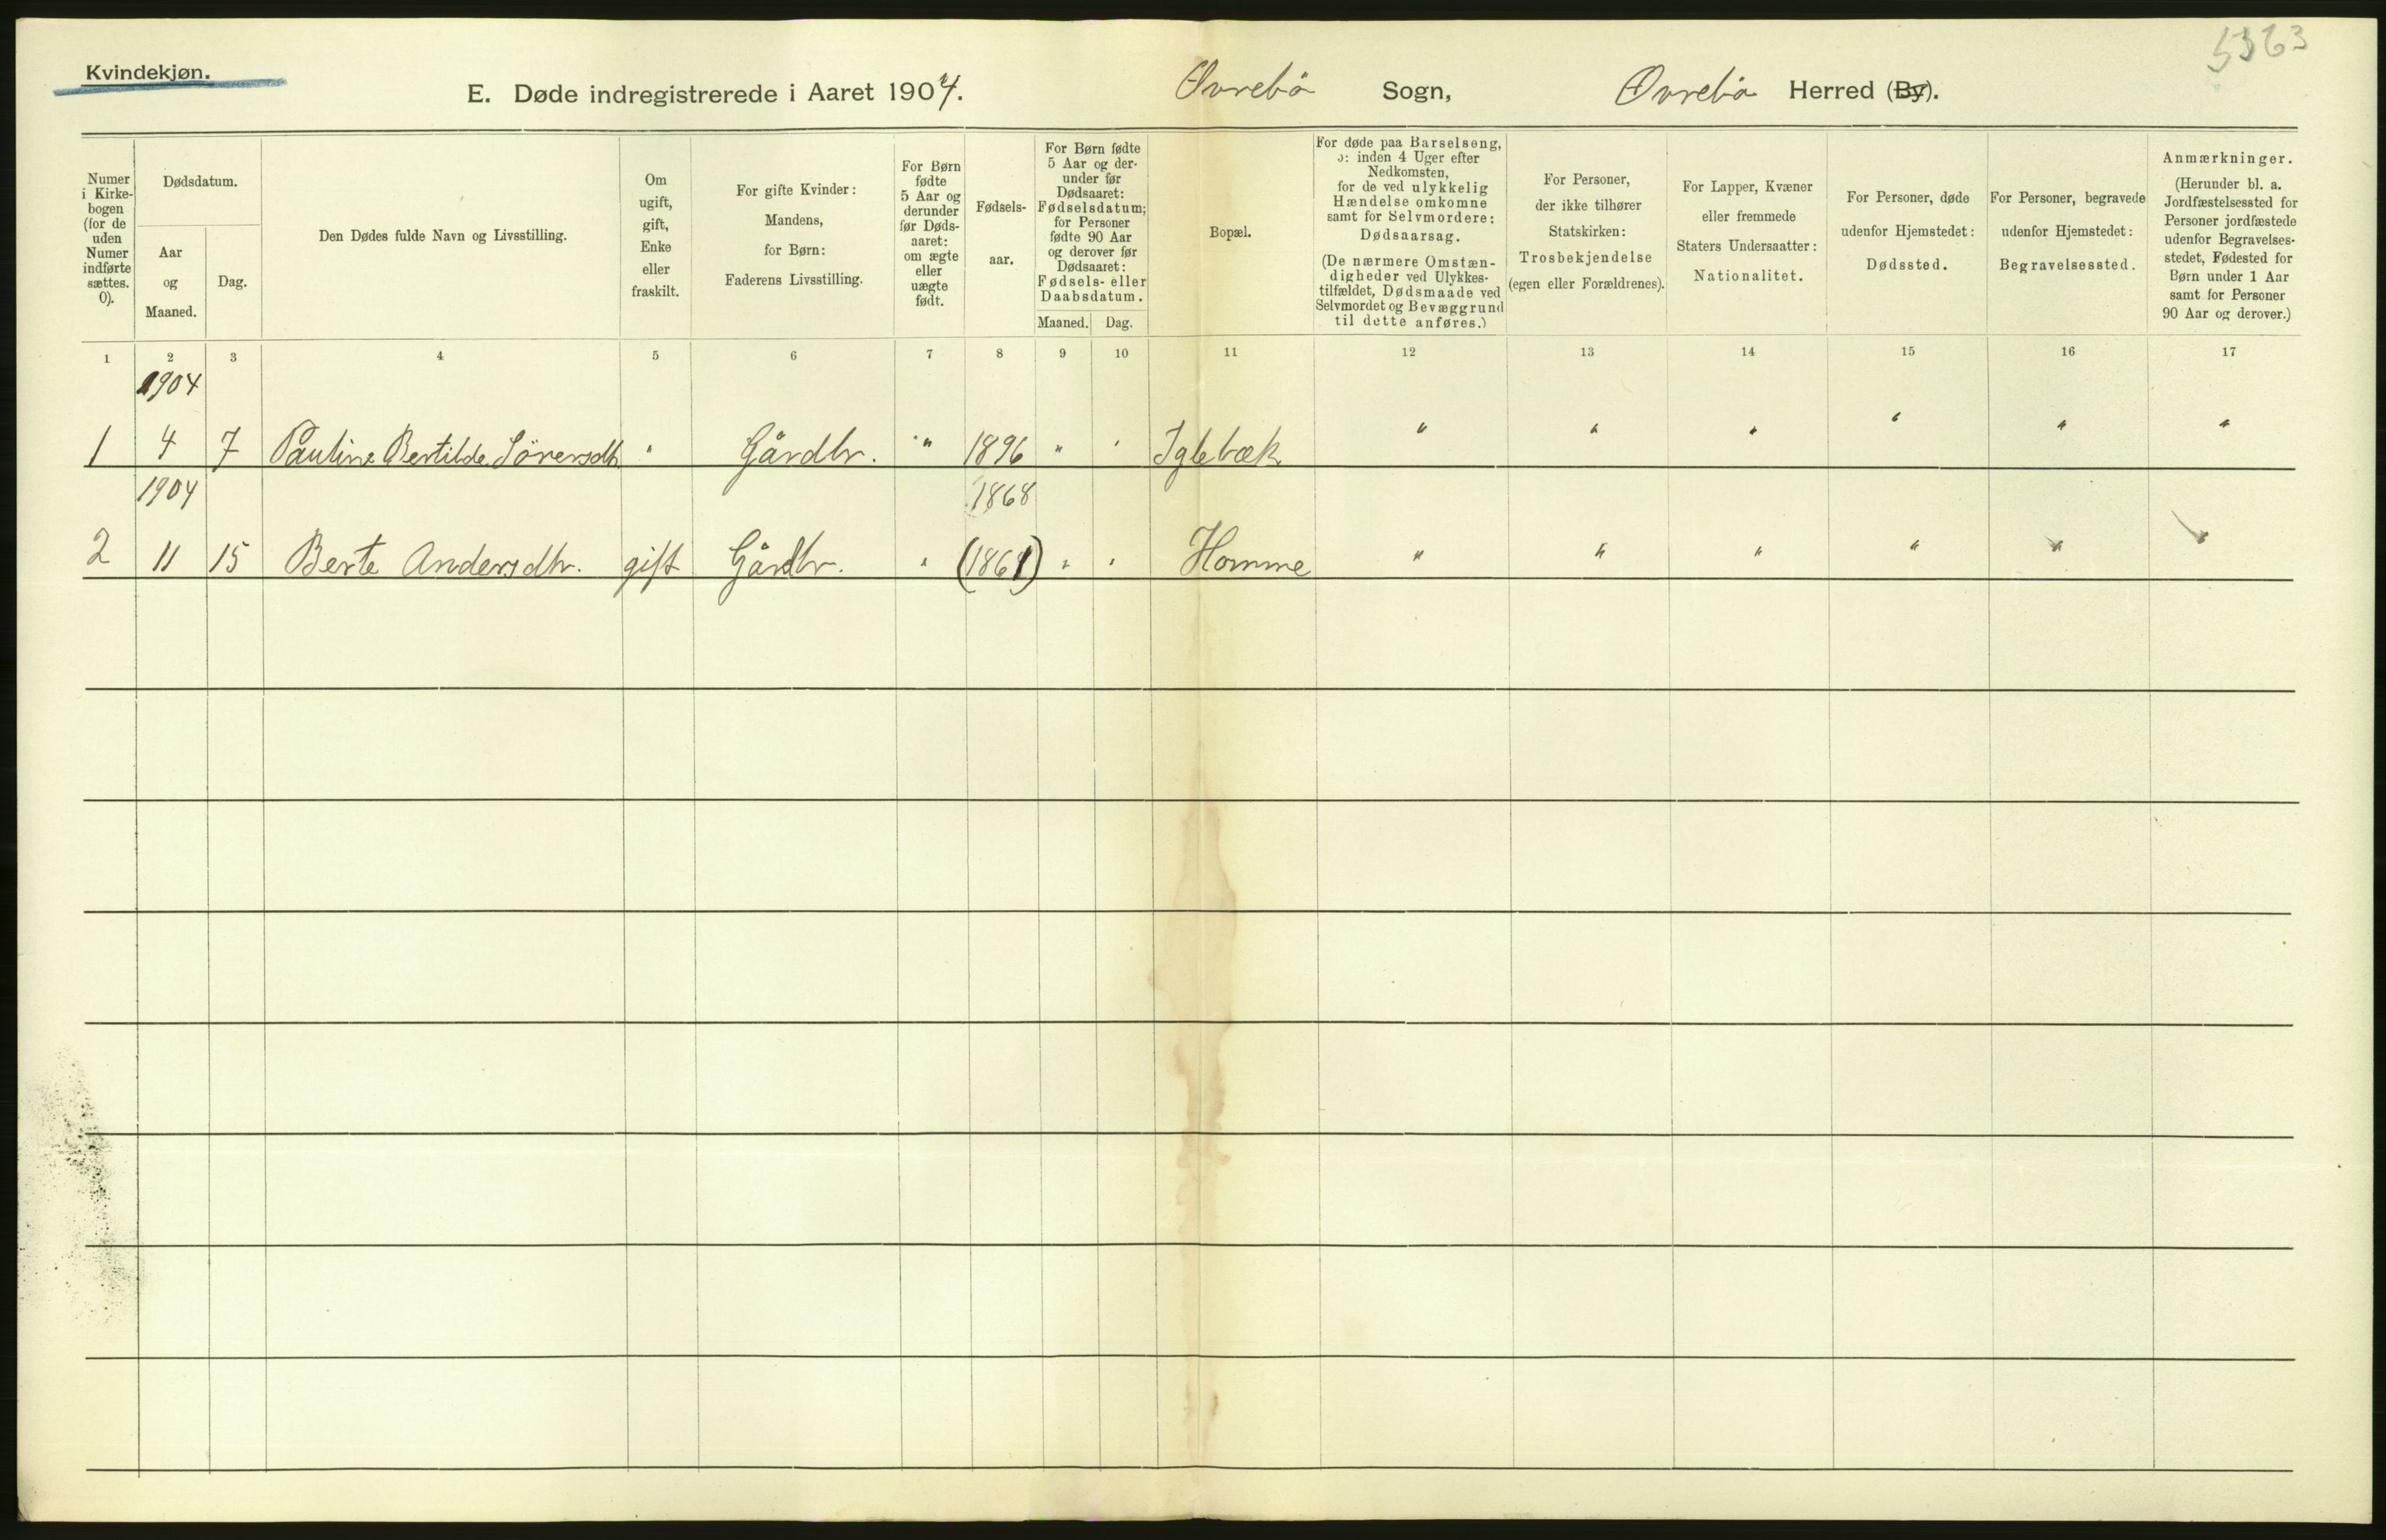 5363
Kvindekjøn.
E. Døde indregistrerede i Aaret 1904. Øvrebö Sogn, Øvrebö Herred (By).
Numer i Kirkebogen (for de uden Numer indførte sættes. 0).
Dødsdatum.
Aar og Maaned.
Dag.
Den Dødes fulde Navn og Livsstilling.
Om ugift, gift, Enke eller fraskilt.
For gifte Kvinder: Mandens, for Børn: Faderens Livsstilling.
For Børn fødte 5 Aar og derunder før Dødsaaret: om ægte eller uægte født.
Fødselsaar.
For Børn fødte 5 Aar og derunder før Dødsaaret: Fødselsdatum; for Personer fødte 90 Aar og derover før Dødsaaret: Fødsels- eller Daabsdatum.
Maaned. Dag.
Bopæl.
For døde paa Barselseng, ɔ: inden 4 Uger efter Nedkomsten, for de ved ulykkelig Hændelse omkomne samt for Selvmordere: Dødsaarsag.
(De nærmere Omstændigheder ved Ulykkestilfældet, Dødsmaade ved Selvmordet og Bevæggrund til dette anføres.)
For Personer, der ikke tilhører Statskirken: Trosbekjendelse (egen eller Forældrenes).
For Lapper, Kvæner eller fremmede Staters Undersaatter: Nationalitet.
For Personer, døde udenfor Hjemstedet: Dødssted.
For Personer, begravede udenfor Hjemstedet: Begravelsessted.
Anmærkninger.
(Herunder bl. a. Jordfæstelsessted for Personer jordfæstede udenfor Begravelsesstedet, Fødested for Børn under 1 Aar samt for Personer 90 Aar og derover.)
1 2 3 4 5 6 7 8 9 10 11 12 13 14 15 16 17
1904
1 4 7 Pauline Bertilde Sörensdtr. " Gårdbr. " 1896 " " Iglebæk " " " " " "
1904 1868
2 11 15 Berte Andersdtr. gift Gårdbr. " (1861) " " Homme " " " " " "